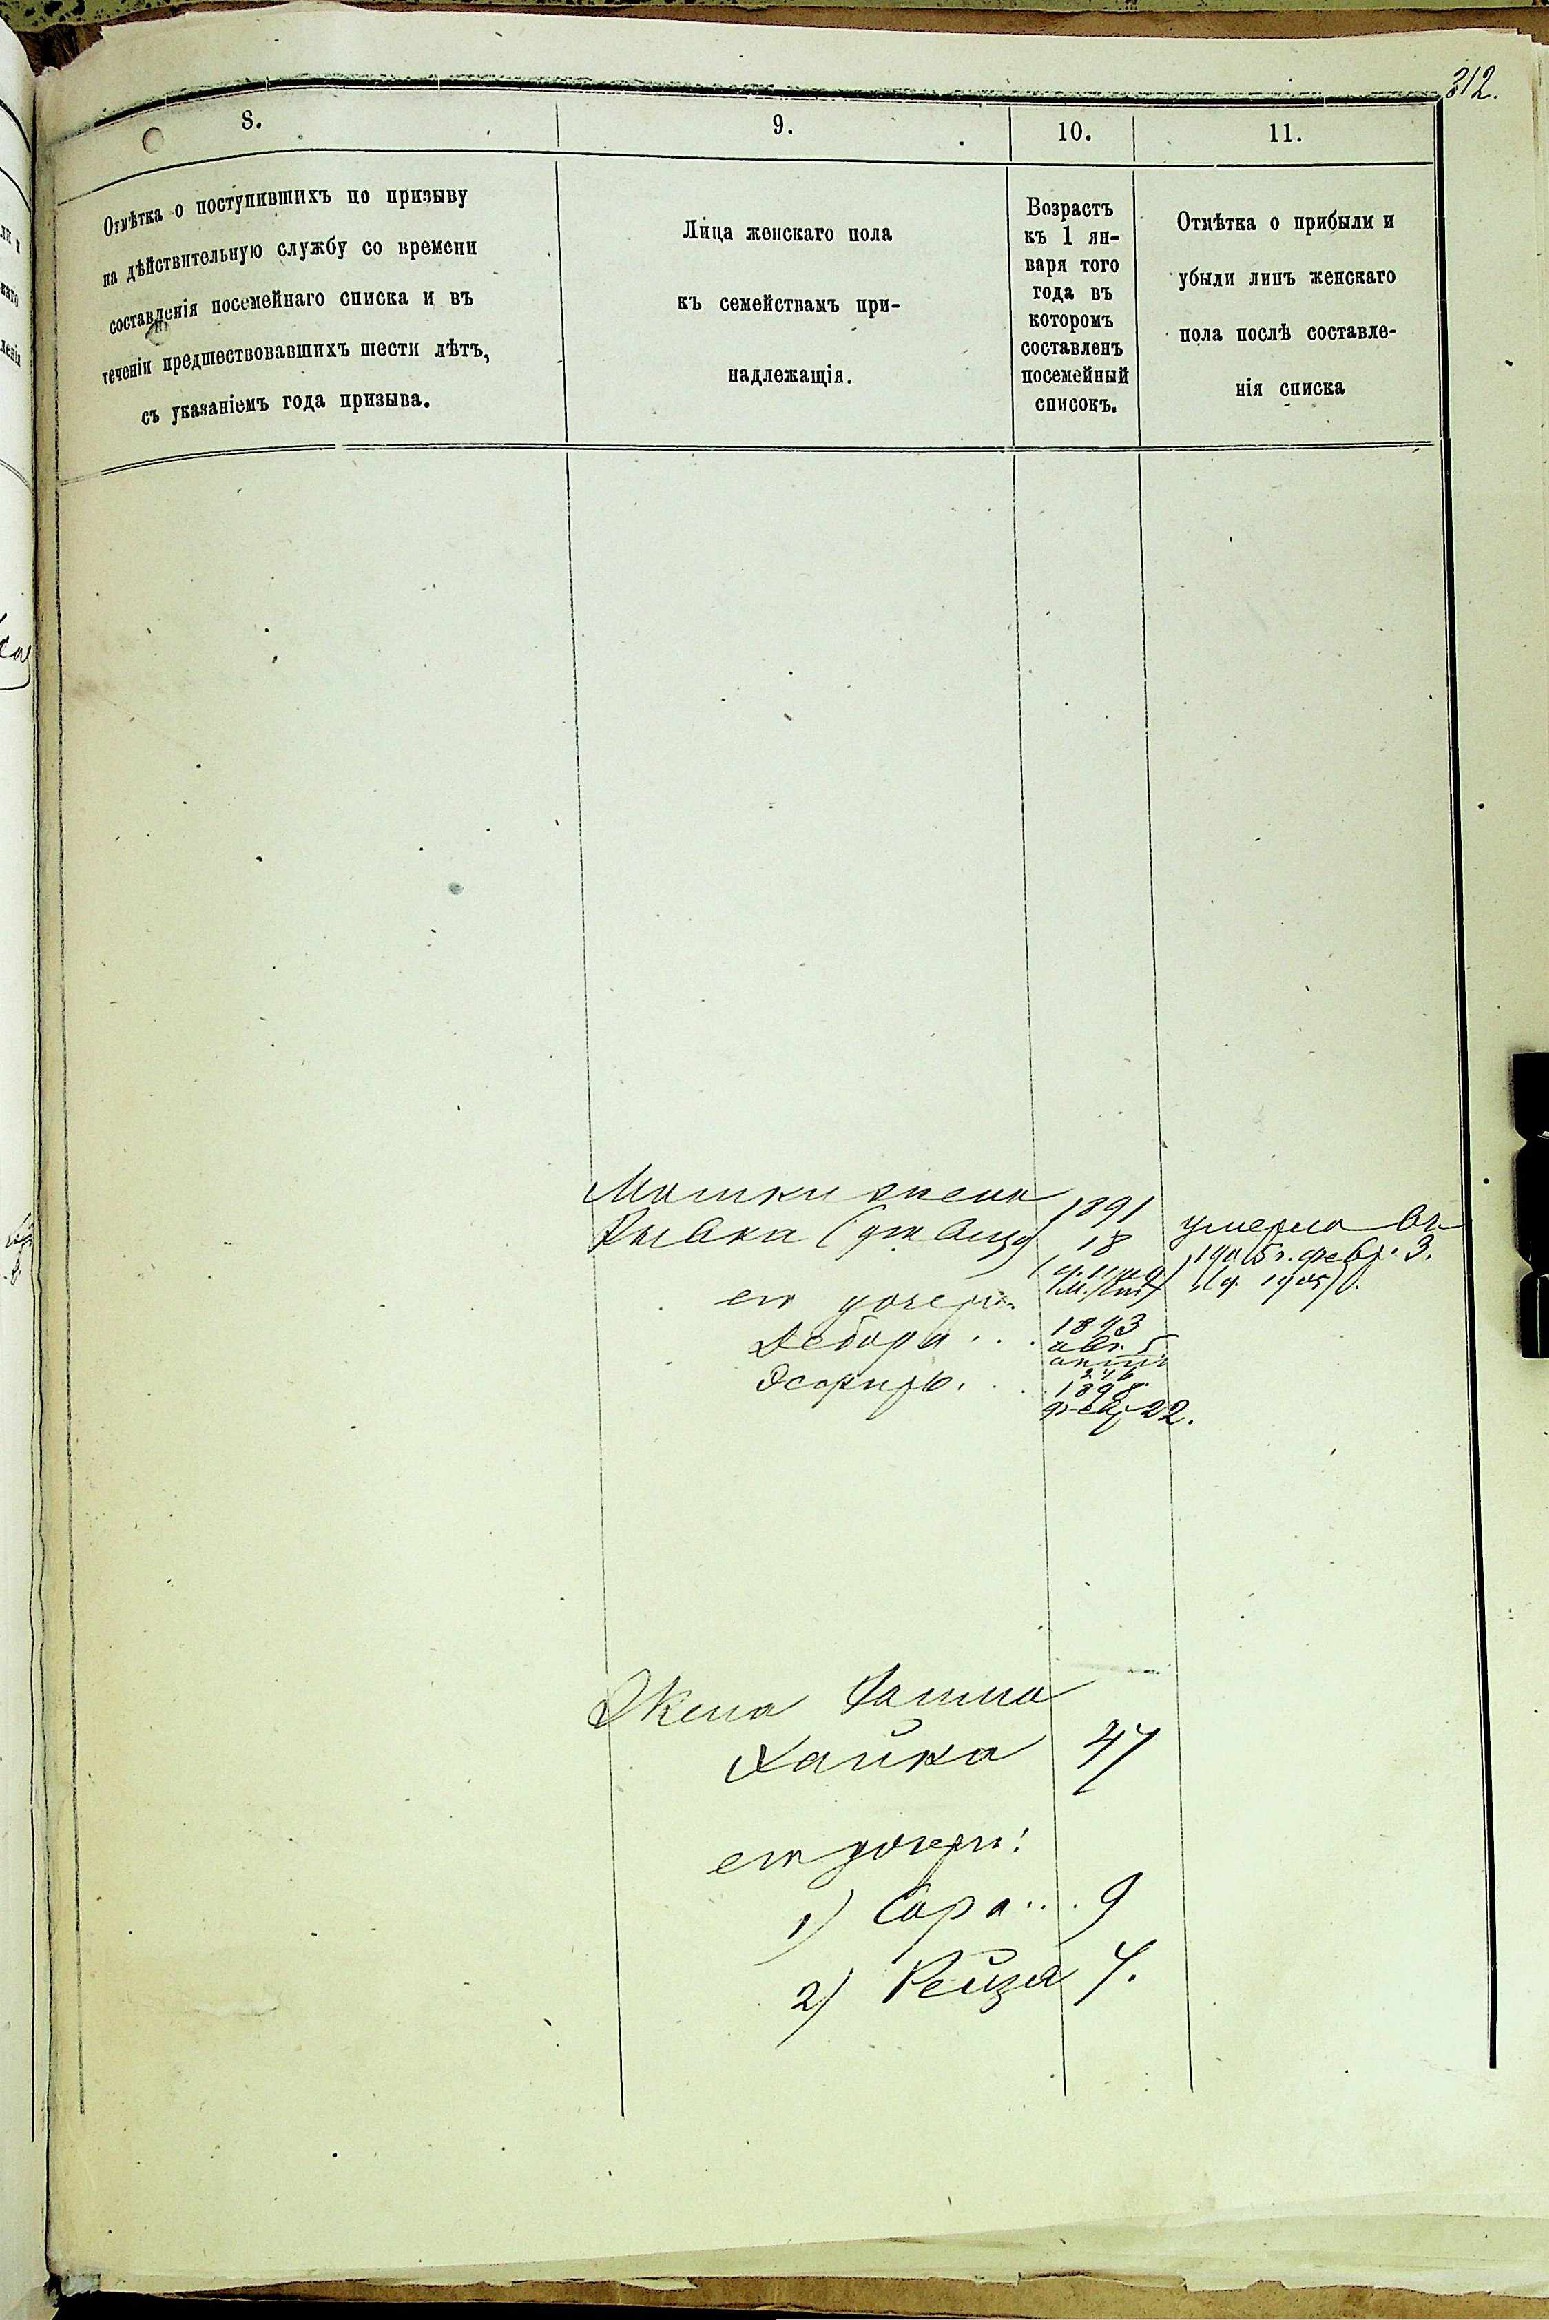 312.
8.
9.
10.
11.
Отмѣтка о поступившихъ по призыву
на дѣйствительную службу со времени
составленія посемейнаго списка и въ
теченіи предшествовавшихъ шести лѣтъ,
съ указаніемъ года призыва.
Лица женскаго пола
къ семействамъ при-
надлежащія.
Возрастъ
къ 1 ян-
варя того
года въ
которомъ
составленъ
посемейный
списокъ.
Отмѣтка о прибыли и
убыли лицъ женскаго
пола послѣ составле-
нія списка
Мошки жена
Рывка
1891
18
умерла въ
1905 г. февр. 3.
ег дочери
Дебора . . .
1893
Эсфирь. . . .
1898
февр 22.
Жена
Хайка 47
ег дочери:
1) Сора . . . 9
2) Рейза 4.